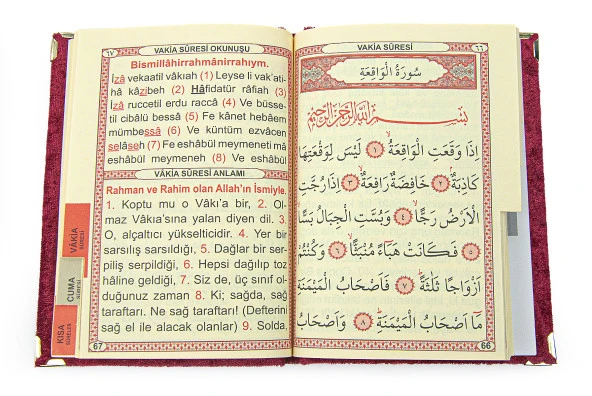 ٦٧
VAKİA SÛRESİ OKUNUŞU
Bismillâhirrahmânirrahıym.
İzâ vekaatil vâkıah (1) Leyse li vak'ati-
hâ kâzibeh (2) Hâfidatür râfiah (3)
İzâ ruccetil erdu raccâ (4) Ve büsse-
til cibâlü bessâ (5) Fe kânet hebâem
mümbessâ (6) Ve küntüm ezvâcen
selâseh (7) Fe eshâbül meymeneti mâ
eshâbül meymeneh (8) Ve eshâbül
VÂKİA SÛRESİ ANLAMI
Rahman ve Rahim olan Allah'ın İsmiyle.
1. Koptu mu o Vâkı'a bir, 2. Ol-
maz Vâkıa'sına yalan diyen dil. 3.
O, alçaltıcı yükselticidir. 4. Yer bir
sarsılış sarsıldığı, 5. Dağlar bir ser-
piliş serpildiği, 6. Hepsi dağılıp toz
hâline geldiği, 7. Siz de, üç sınıf ol-
duğunuz zaman 8. Ki; sağda, sağ
taraftarı. Ne sağ taraftarı! (Defterini
sağ el ile alacak olanlar) 9. Solda,
67
VÂKİA
SÛRESİ
CUMA
SÛRESİ
KISA
SÛRELER
VAKİA SÛRESİ
٦٦
سُورَةُ الْوَاقِعَةِ
بِسْمِ اللّٰهِ الرَّحْمٰنِ الرَّحِيمِ
اِذَا وَقَعَتِ الْوَاقِعَةُ ﴿١﴾ لَيْسَ لِوَقْعَتِهَا
كَاذِبَةٌ ﴿٢﴾ خَافِضَةٌ رَافِعَةٌ ﴿٣﴾ اِذَا رُجَّتِ
الْاَرْضُ رَجًّا ﴿٤﴾ وَبُسَّتِ الْجِبَالُ بَسًّا
﴿٥﴾ فَكَانَتْ هَبَٓاءً مُنْبَثًّا ﴿٦﴾ وَكُنْتُمْ
اَزْوَاجًا ثَلٰثَةً ﴿٧﴾ فَاَصْحَابُ الْمَيْمَنَةِ
مَٓا اَصْحَابُ الْمَيْمَنَةِ ﴿٨﴾ وَاَصْحَابُ
66